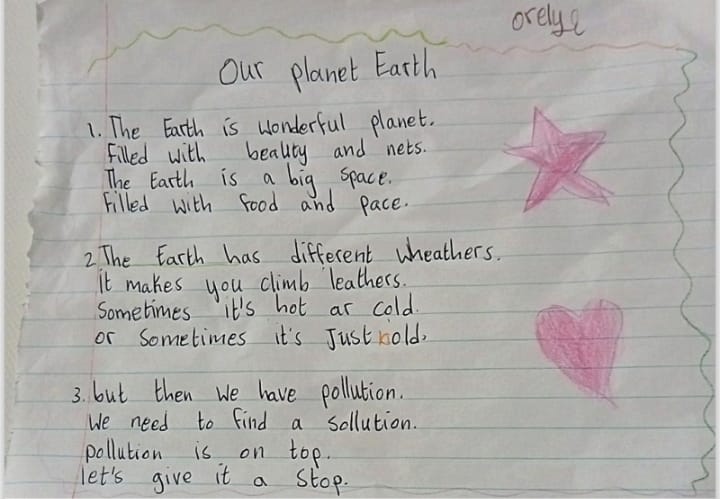 orelya
Our planet Earth
1. The Earth is wonderful planet.
Filled with beauty and nets.
The Earth is a big space.
Filled with food and pace.
2 The Earth has different wheathers.
it makes you climb leathers.
Sometimes it's hot ar cold.
or Sometimes it's Just hold.
3. but then we have pollution.
We need to find a sollution.
pollution is on top.
let's give it a stop.